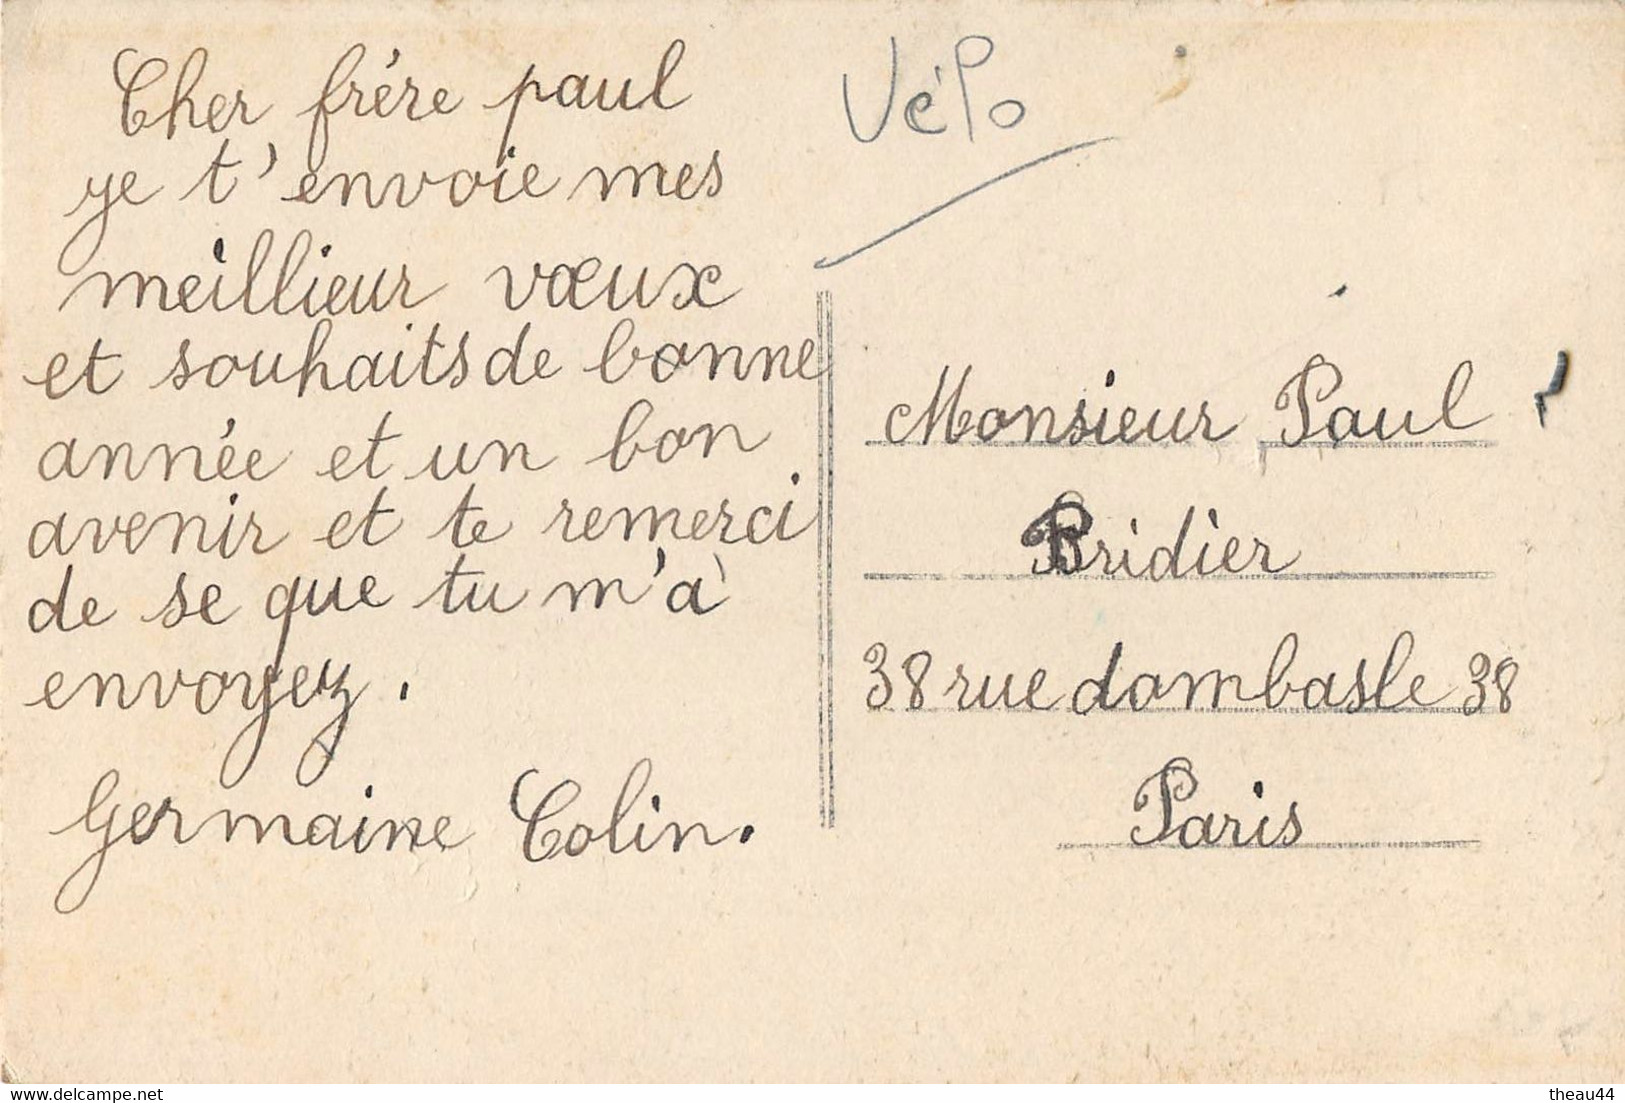 Cher frére paul
ye t'envoie mes
meillieur vœux
et souhaits de bonne
année et un bon
avenir et te remerci
de se que tu m'a
envoyez.
Germaine Colin.
Vélo
Monsieur Paul
Bridier
38 rue dombasle 38
Paris
https://www.delcampe.net
theau44